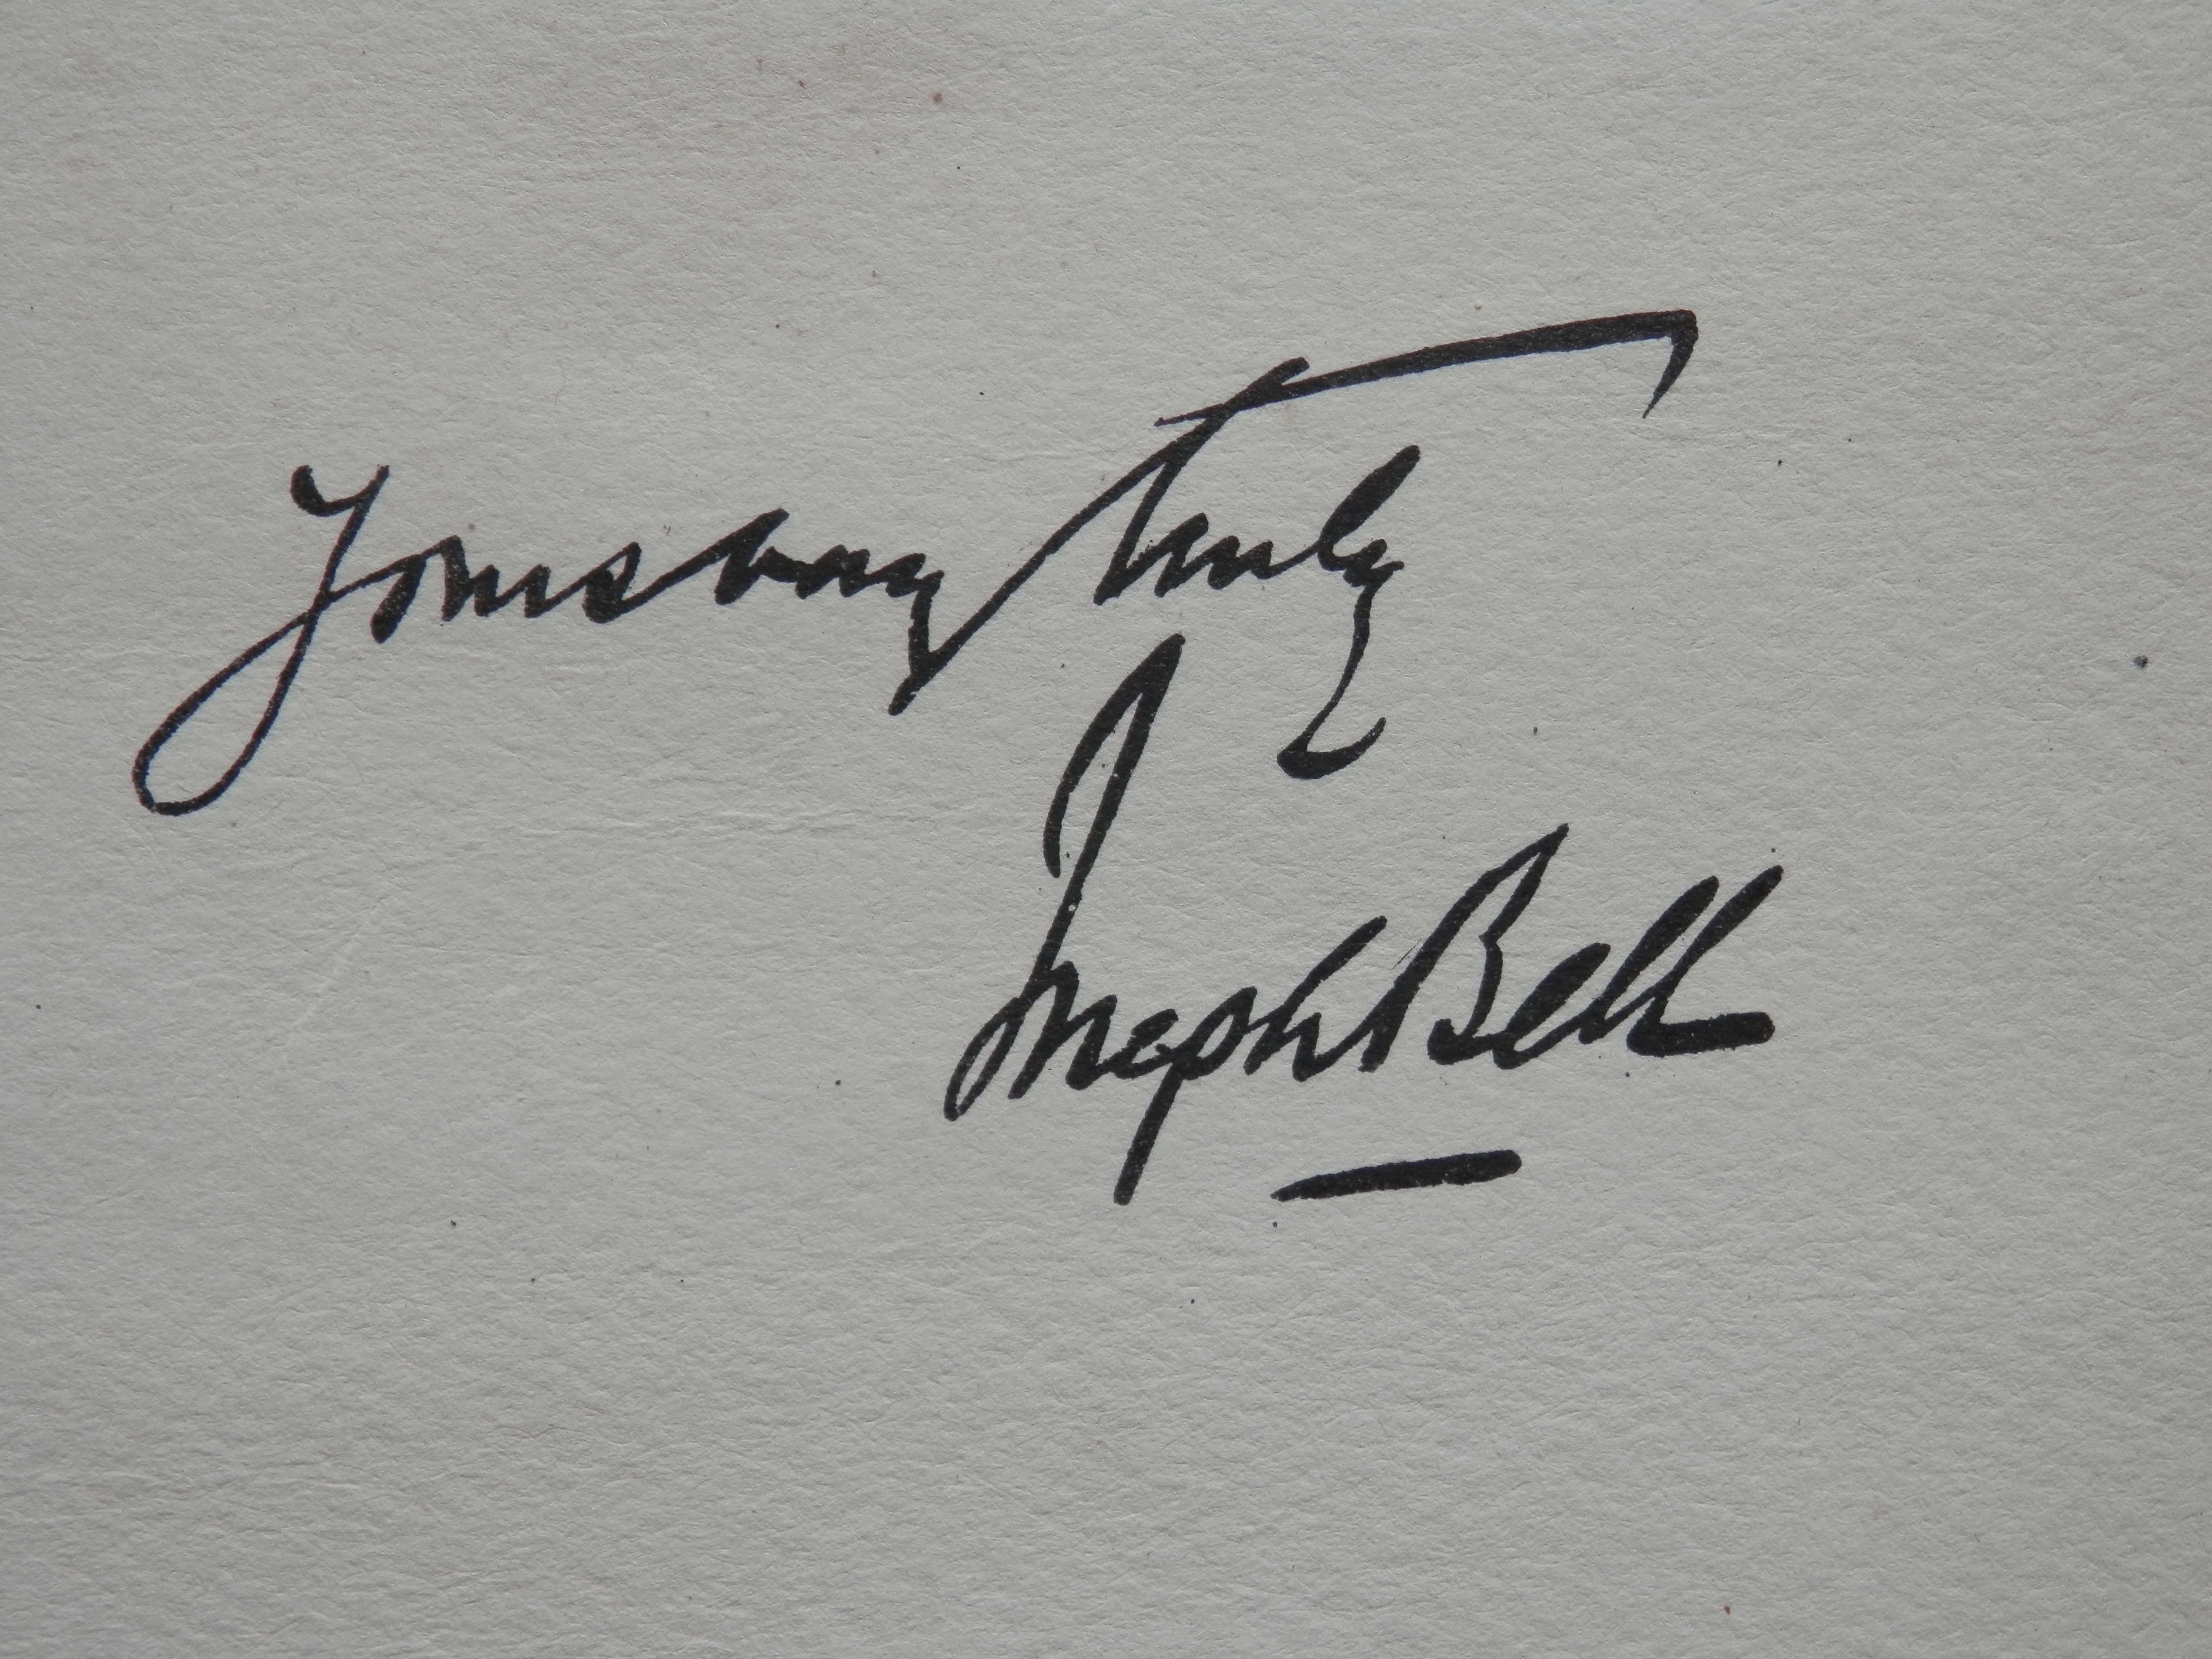 Yours very truly
Joseph Bell